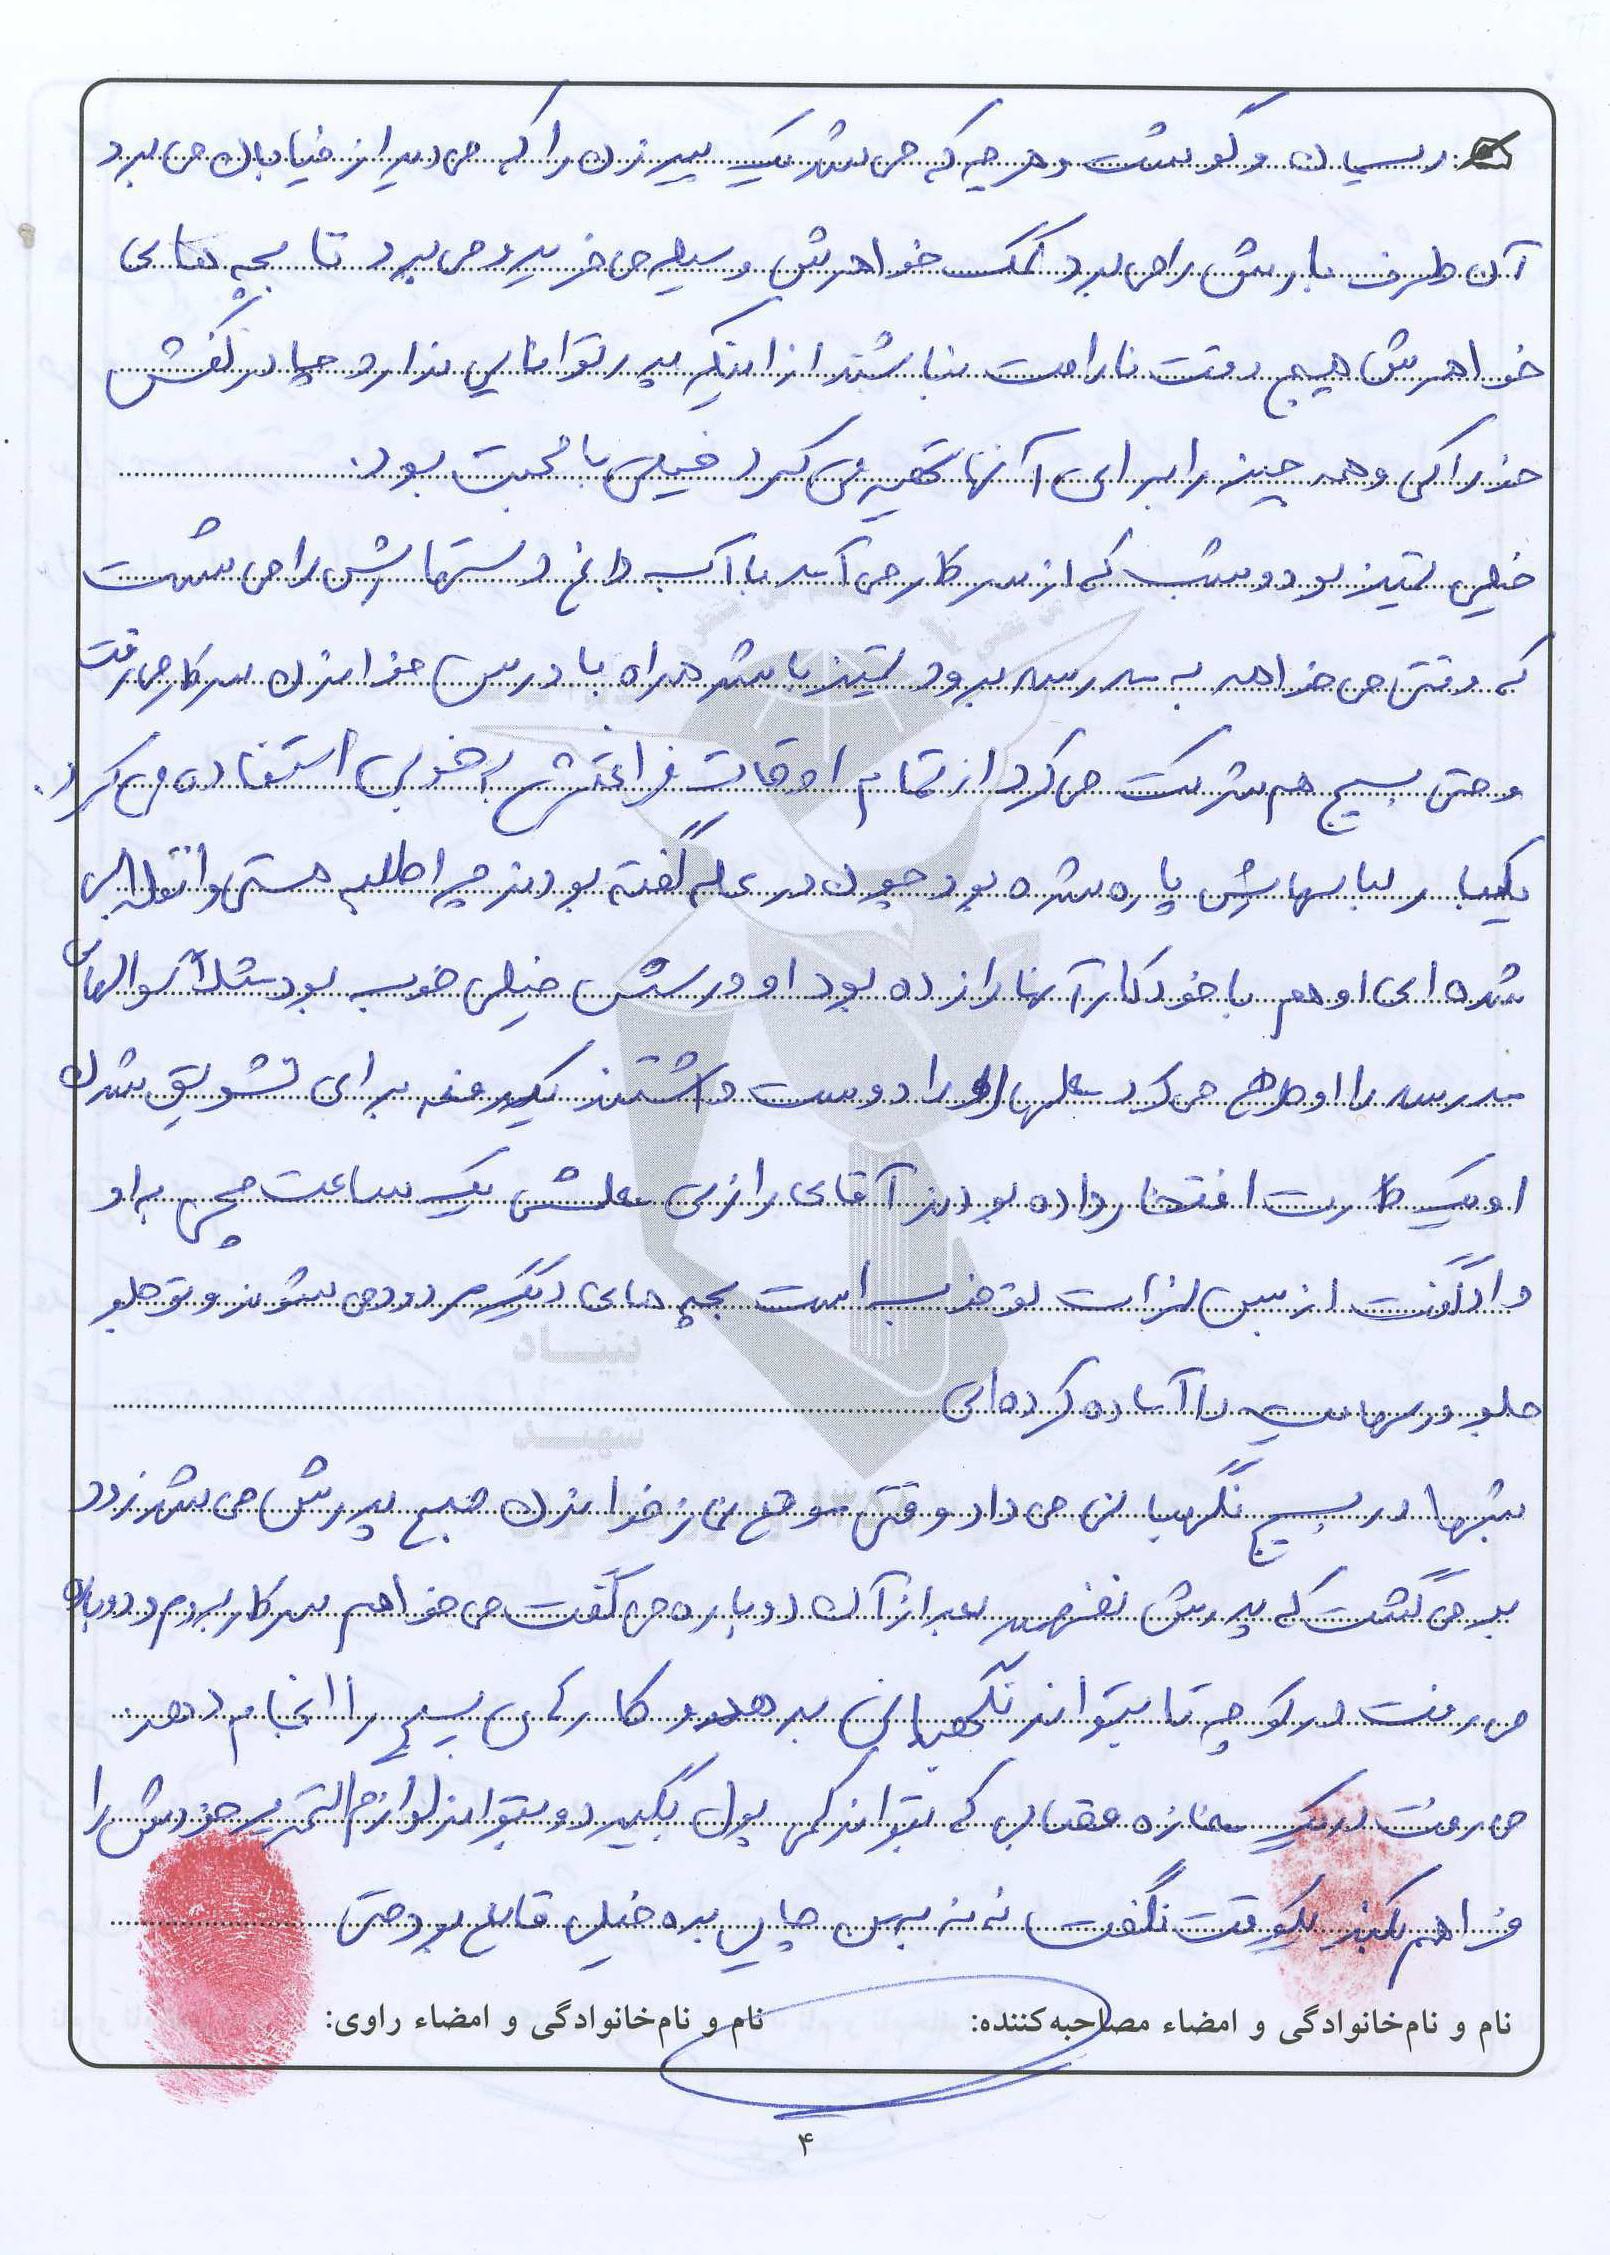 ریسمان و گوشت و هرچه که می شد یک پیرزن را که می دید از خیابان می برد
آن طرف بارش را می برد کمک خواهرش وسیله می خرید و می برد تا بچه های
خواهرش هیچ وقت ناراحت نباشند از اینکه پدر توانایی ندارد چادر کفش
خوراکی و همه چیز را برای آنها تهیه می کرد خیلی با محبت بود.
خیلی تمیز بود و شب که از سر کار می آمد با آب داغ دستهایش را می شست
که وقتی می خواهد به مدرسه برود تمیز باشد همراه با درس خواندن سر کار می رفت
و حتی بسیج هم شرکت می کرد از تمام اوقات فراغتش به خوبی استفاده می کرد.
یکبار لباسهایش پاره شده بود چون معلم گفته بودند چرا طلبه هستی و انقلابی
شده ای او هم با خودکار آنها را زده بود او درسش خیلی خوب بود مثلاً سوالهای
مدرسه را او طرح می کرد معلمها او را دوست داشتند یکدفعه برای تشویق شدن
او یک کارت افتخار داده بودند آقای رازی معلمش یک ساعت مچی به او
داد گفت از بس نمرات تو خوب است بچه های دیگر مردود می شوند و تو جلو
جلو درسهایت را آماده کرده ای
شبها در بسیج نگهبانی می داد وقتی موقع نماز خواندن صبح پدرش می شد زود
بر می گشت که پدرش نفهمد بعد از آن دوباره می گفت می خواهم سر کار بروم دوباره
می رفت در کوچه تا بتواند نگهبانی بدهد و کارهای بسیج را انجام دهد.
می رفت در یک مغازه قصابی که بتواند کمی پول بگیرد و بتواند لوازم التحریر خودش را
فراهم بکند یکوقت نگفت نه نه به من چای بده خیلی قانع بود حتی
نام و نام خانوادگی و امضاء مصاحبه کننده:
نام و نام خانوادگی و امضاء راوی:
بنیاد
شهید
۴